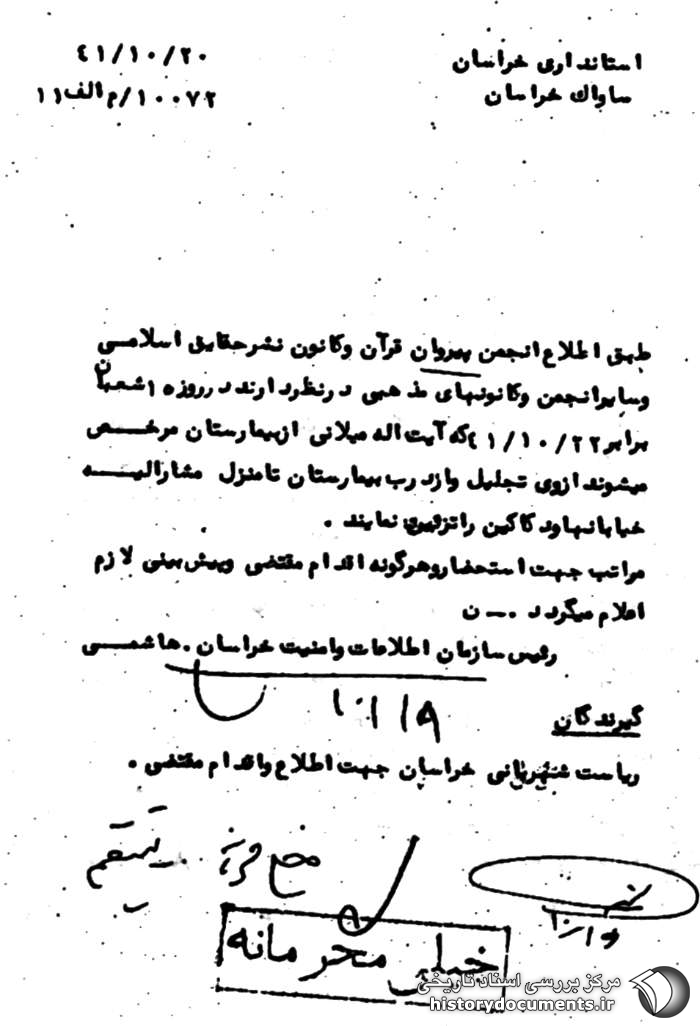 استانداری خراسان
ساواك خراسان
٤١/١٠/٢٠
١٠٠٧٢/م الف ١١
طبق اطلاع انجمن پیروان قرآن وکانون نشرحقایق اسلامی
وسایرانجمن وکانونهای مذهبی درنظردارند در روزه ١ شعبان
برابر ٤١/١٠/٢٢ که آیت اله میلانی ازبیمارستان مرخص
میشوند ازوی تجلیل وازدرب بیمارستان تامنزل مشارالیه
خیابانهاودکاکین راتزئین نمایند .
مراتب جهت استحضاروهرگونه اقدام مقتضی وپیش بینی لازم
اعلام میگردد . ن
رئیس سازمان اطلاعات وامنیت خراسان . هاشمی
گیرندگان
ریاست شهربانی خراسان جهت اطلاع واقدام مقتضی .
خیلی محرمانه
مرکز بررسی اسناد تاریخی
historydocuments.ir